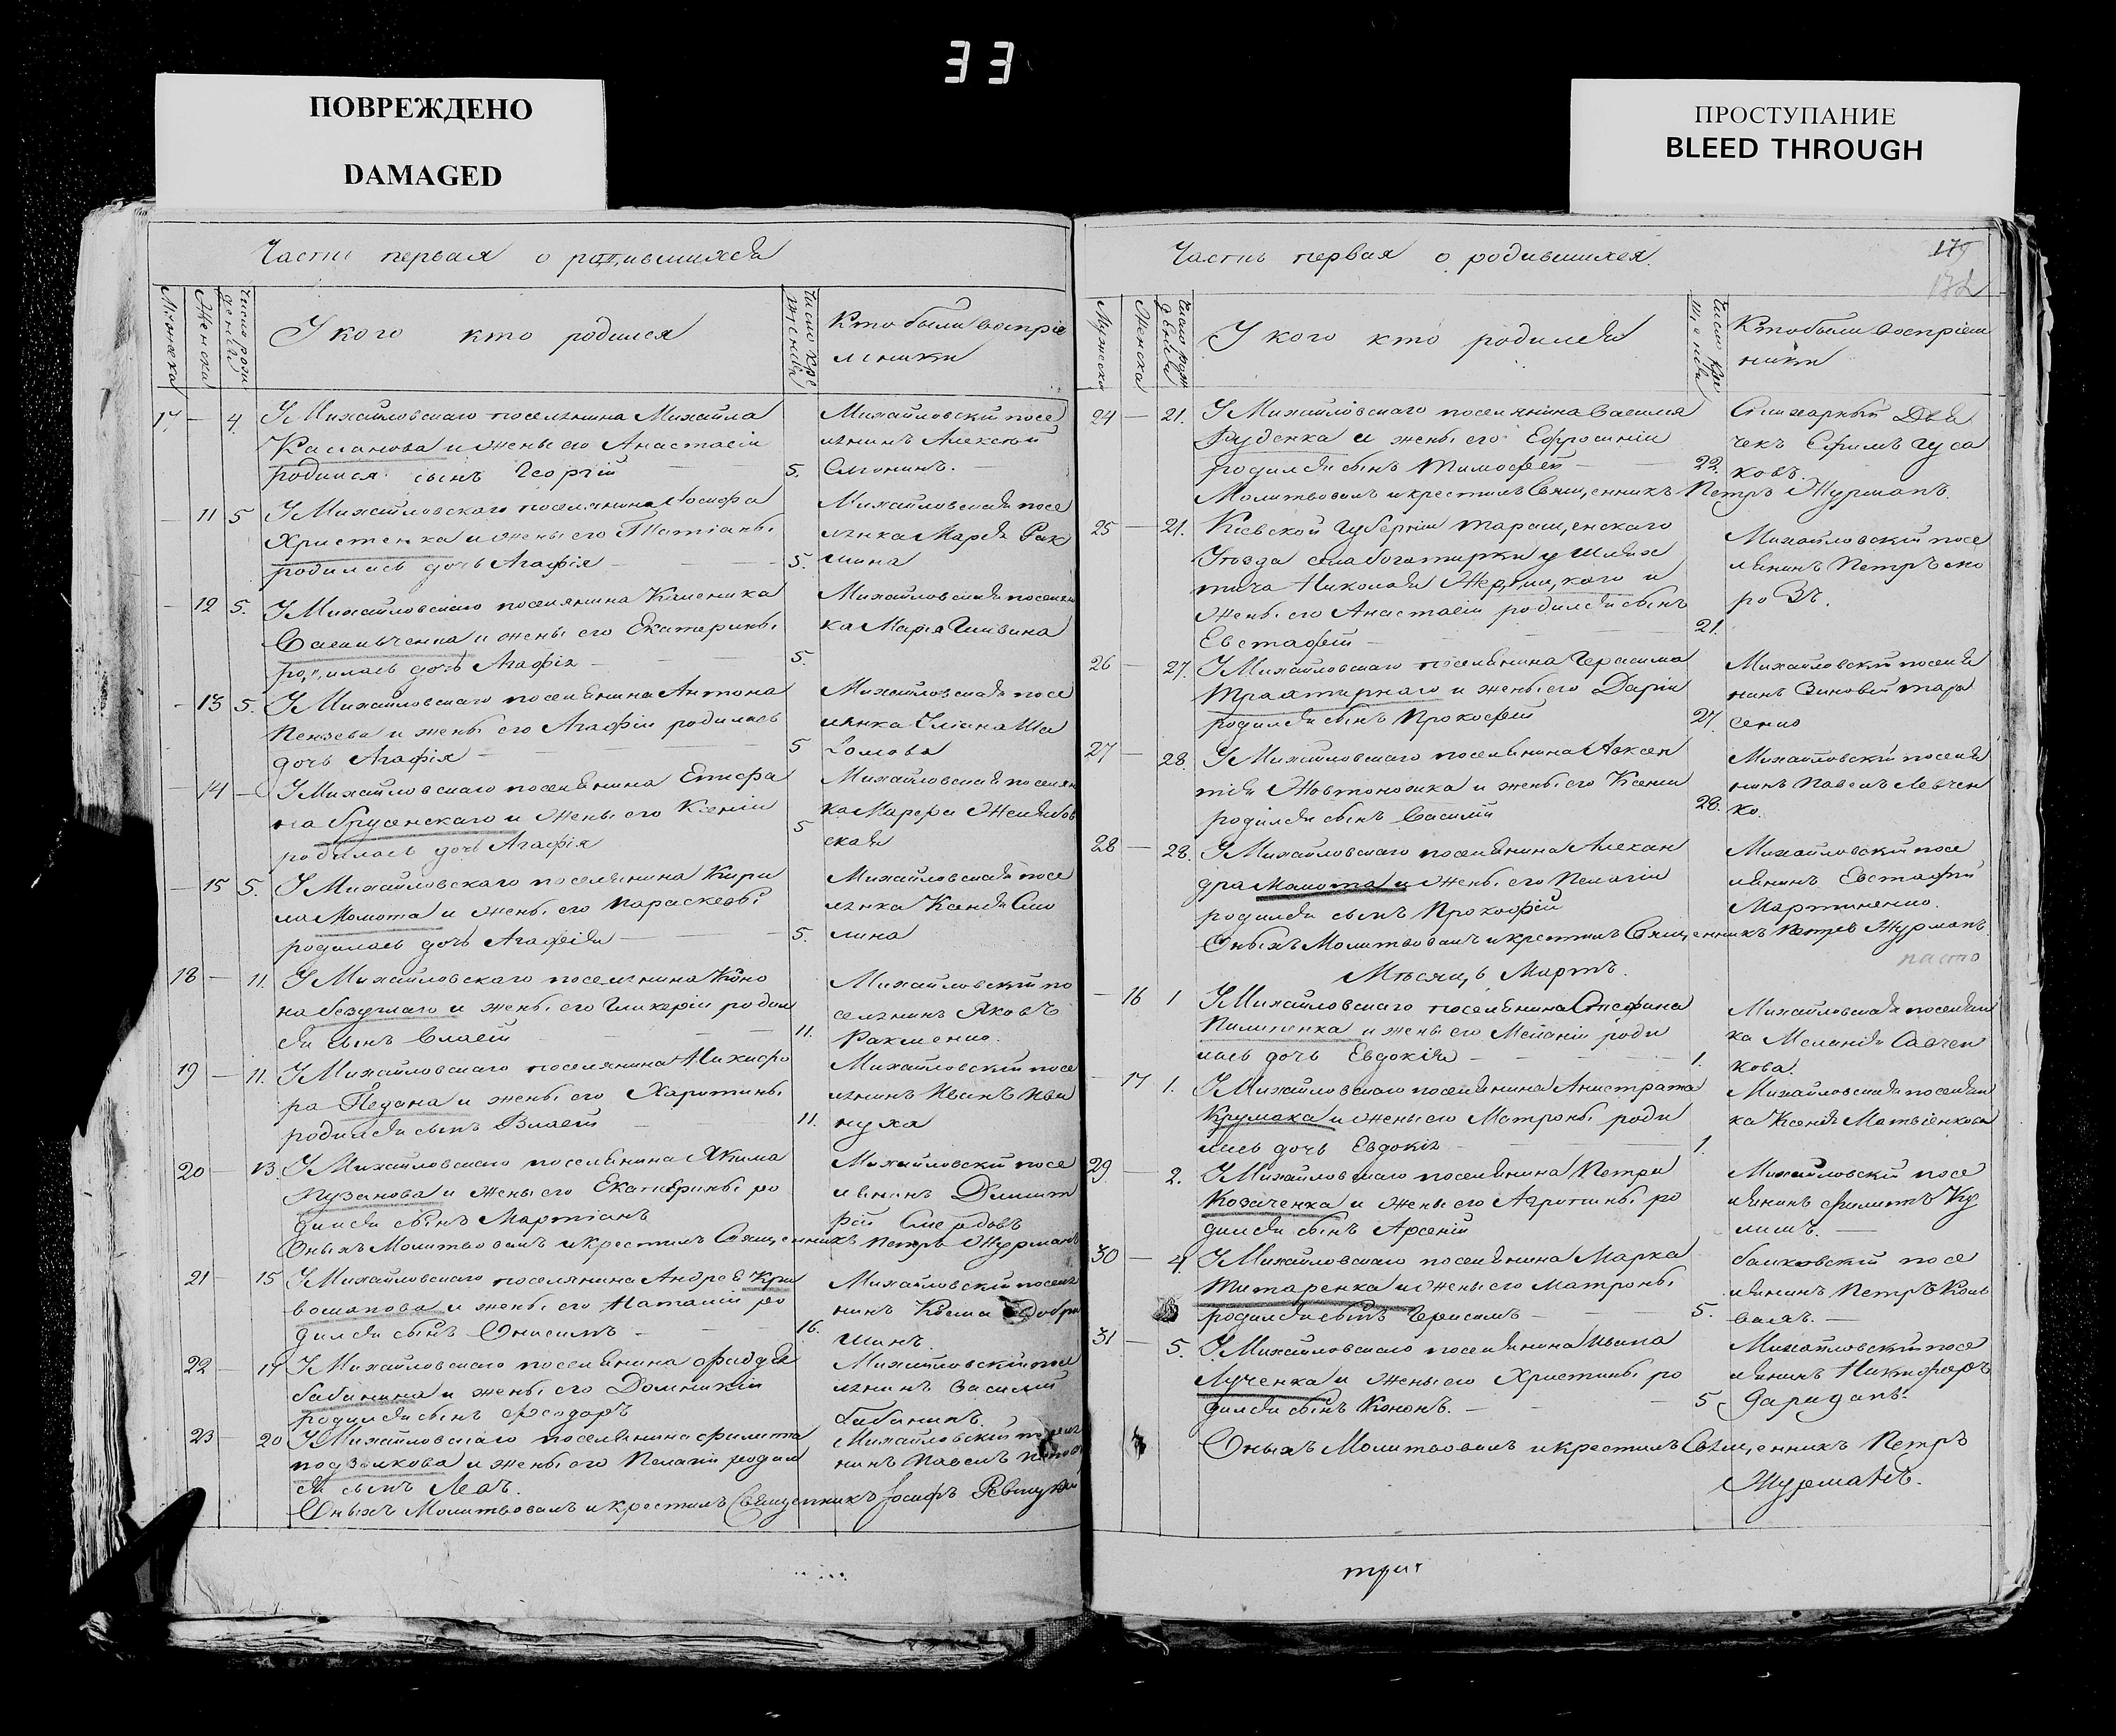 33
ПОВРЕЖДЕНО
DAMAGED
ПРОСТУПАНИЕ
BLEED THROUGH
Часть первая о родившихся
Мужеска
Женска
Число рож
денія
У кого кто родился
Число кре
щенія
Кто были воспріе
мники
17 — 4. У Михайловскаго поселянина Михайла
Касianова и жены его Анастасіи
родился сынъ Георгій — 5.
Михайловскій посе
лянинъ Алексѣй
— 11 5 У Михайловскаго поселянина Іосифа
Христенка и жены его Татіаны
родилась дочь Агафія — 5.
Михайловская посе
лянка Марѳа
— 12 5. У Михайловскаго поселянина
Васильченка и жены его Екатерины
родилась дочь Агафія — 5.
Михайловская поселян
ка Марія
— 13 5. У Михайловскаго поселянина Антона
Пензева и жены его Агафіи родилась
дочь Агафія — 5
Михайловская посе
лянка Уліана Ша
— 14 — У Михайловскаго поселянина
и жены его Ксеніи
родилась дочь Агафія 5
Михайловская поселян
ка Марѳа
ская
— 15 5. У Михайловскаго поселянина Кири
ла Момота и жены его Параскевы
родилась дочь Агафія — 5.
Михайловская посе
лянка Ксенія
18 — 11. У Михайловскаго поселянина Коно
на Безуглаго и жены его Гликеріи родил
ся сынъ Власій — 11.
Михайловскій по
селянинъ Яковъ
Ракшенко.
19 — 11. У Михайловскаго поселянина Никифо
ра Педана и жены его Харитины
родился сынъ Власій — 11.
Михайловскій посе
лянинъ Иванъ Ива
нуха
20 — 13. У Михайловскаго поселянина Якима
Пузанова и жены его Екатерины ро
дился сынъ Мартіанъ
Михайловскій посе
лянинъ Димит
рій Смердовъ
Оныхъ Молитвовалъ и крестилъ Священникъ Петръ Журманъ
21 15 У Михайловскаго поселянина Андрея Кри
вошапова и жены его Наталіи ро
дился сынъ Онисимъ — 16.
Михайловскій поселя
нинъ Косма
22 — 17 У Михайловскаго поселянина Фаддея
Бабанина и жены его Домникіи
родился сынъ Феодоръ
Михайловскій посе
лянинъ Василій
Бабанинъ.
23 — 20 У Михайловскаго поселянина Филипа
Подзолкова и жены его Пелагіи родил
ся сынъ Левъ.
Михайловскій поселя
нинъ Павелъ
Оныхъ Молитвовалъ и крестилъ Священникъ Іосифъ
Часть первая о родившихся.
179
Мужеска
Женска
Число рож
денія
У кого кто родился
Число кре
щенія
Кто были воспріем
ники
24 — 21. У Михайловскаго поселянина Василія
Руденка и жены его Ефросиніи
родился сынъ Тимофей — 22.
Дья
чекъ Ефимъ Гуса
ковъ.
Молитвовалъ и крестилъ Священникъ Петръ Журманъ.
25 — 21. Кіевской Губерніи Таращенскаго
Уѣзда села Богатирки у шлях
тича Николая и
жены его Анастасіи родился сынъ
Евстафій — 21.
Михайловскій посе
лянинъ Петръ
26 — 27. У Михайловскаго поселянина Герасима
Трахтирнаго и жены его Даріи
родился сынъ Прокофій 27.
Михайловскій поселя
нинъ Зиновій Тара
сенко
27 — 28. У Михайловскаго поселянина Авксен
тія и жены его Ксеніи
родился сынъ Василій 28.
Михайловскій поселя
нинъ Павелъ Левчен
ко.
28 — 28. У Михайловскаго поселянина Алексан
дра Момота и жены его Пелагіи
родился сынъ Прокофій
Михайловскій посе
лянинъ Евстафій
Мартиненко.
Оныхъ Молитвовалъ и крестилъ Священникъ Петръ Журманъ.
Мѣсяцъ Мартъ.
— 16 1 У Михайловскаго поселянина Стефана
Пилипенка и жены его Меланіи роди
лась дочь Евдокія — 1.
Михайловская поселян
ка Меланія Савчен
кова.
— 17 1. У Михайловскаго поселянина Анистрата
Крумака и жены его Матроны роди
лась дочь Евдокія — 1.
Михайловская поселян
ка Ксенія Матвіенкова
29 — 2. У Михайловскаго поселянина Петра
Козаченка и жены его Агрипины ро
дился сынъ Арсеній
Михайловскій посе
лянинъ Филипъ Ку
лишъ. —
30 — 4. У Михайловскаго поселянина Марка
Титаренка и жены его Матроны
родился сынъ Герасимъ — 5.
Балковскій посе
лянинъ Петръ Кова
31 — 5. У Михайловскаго поселянина Ивана
Лученка и жены его Христины ро
дился сынъ Кононъ. — 5.
Михайловскій посе
лянинъ Никифоръ
Гариданъ.
Оныхъ Молитвовалъ и крестилъ Священникъ Петръ
Журманъ.